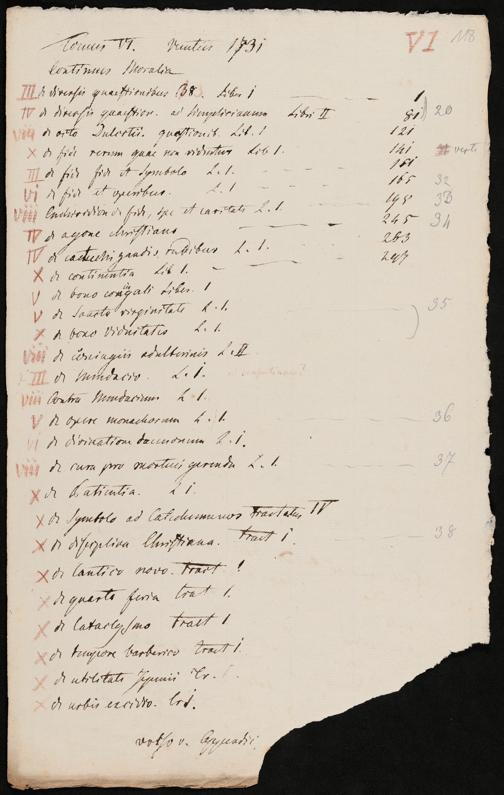 Tomus VI. Venetiis 1731 VI 118
Continens Moralia
III de diversis quaestionibus 83. Liber i — 1
IV de diversis quaestion. ad Simplicianum Libri II 81 20
viii de octo Dulcitii quaestionib. Lib. 1 121
x de fide rerum quae non videntur Lib. 1. 141 verte
III de fide et Symbolo L. 1. 151
vi de fide et operibus. L. 1 165 32
viii Enchiridion de fide, spe et caritate L. 1. 195 33
IV de agone Christiano 245 34
IV de catechizandis rudibus L. 1. 263
X de continentia Lib 1. 297
V de bono conjugali Liber. 1
V de Sancta virginitate L. 1. 35
X de bono Viduitatis L. 1.
viii de conjugiis adulterinis L. II
III de Mendacio. L. 1.
viii Contra Mendacium L. 1.
V de opere monachorum L. 1. 36
vi de divinatione daemonum L. 1.
viii de cura pro mortuis gerenda L. 1. 37
X de Patientia. L 1
X de Symbolo ad Catechumenos tractatus IV
X de disciplina Christiana. tract 1. 38
X de Cantico novo. tract 1
X de quarta feria tract 1
X de Cataclysmo tract 1
X de tempore barbarico tract 1.
X de utilitate Jejunii Tr. 1.
X de urbis excidio. tr 1.